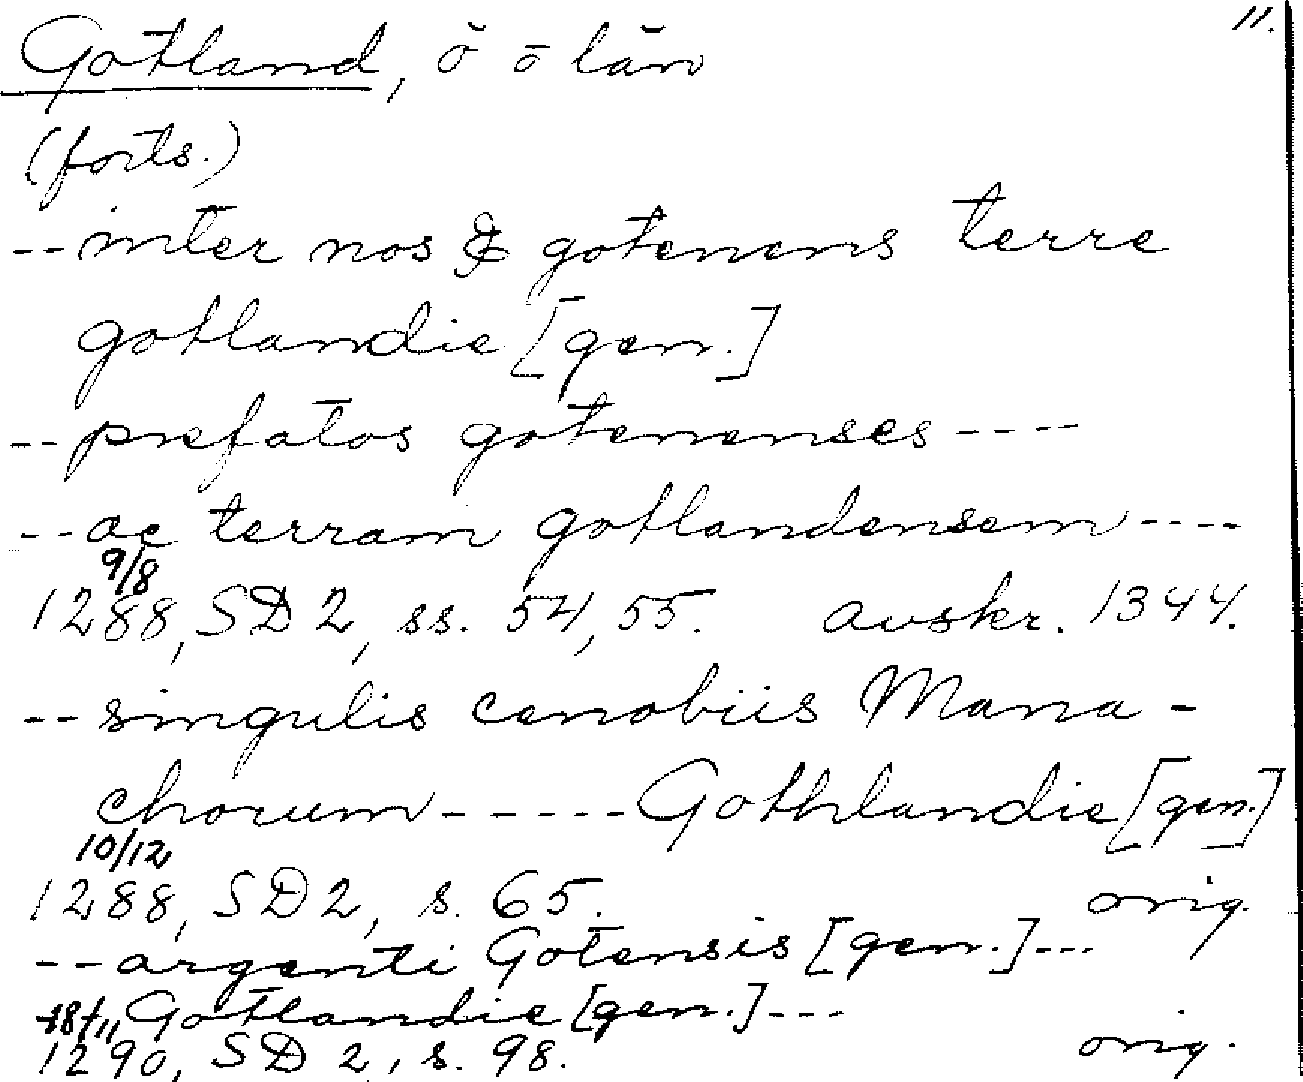 11.
Gotland, ö o län
(forts.)
-- inter nos & gotenens terre
gotlandie [gen.]
-- prefatos gotenenses ----
-- ac terram gotlandensem ----
9/8
1288, SD 2, ss. 54, 55. avskr. 1344.
-- singulis cenobiis Mana-
chorum ----- Gothlandie [gen.]
10/12
1288, SD 2, s. 65. orig.
-- argenti Gotensis [gen.] ---
Gotlandie [gen.] ---
18/11
1290, SD 2, s. 98. orig.